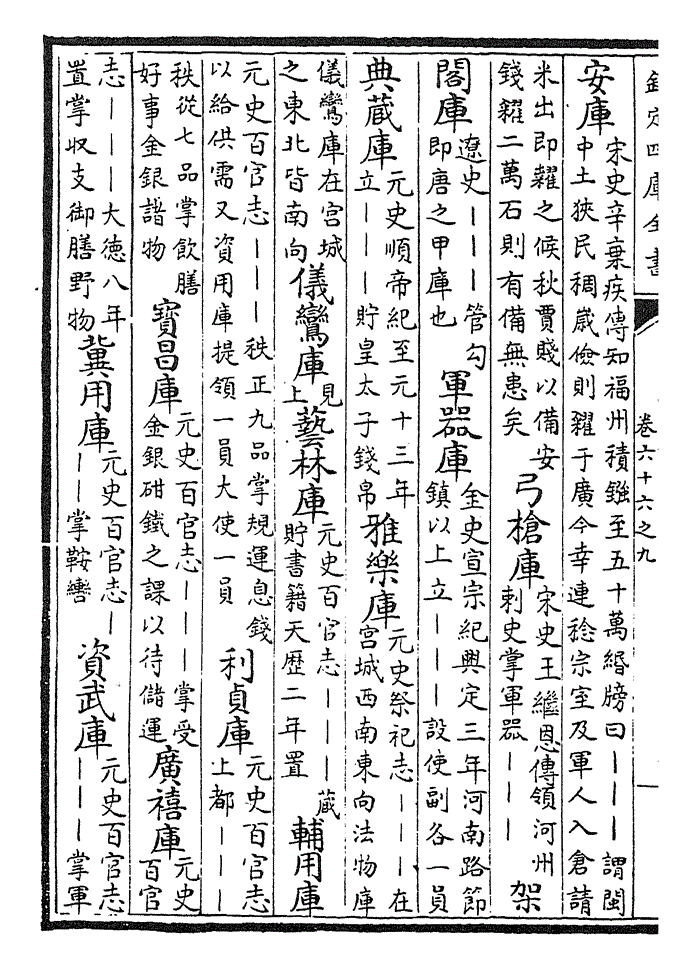 欽定四庫全書
卷六十六之九
安庫宋史辛棄疾傳知福州積鏹至五十萬緡牓曰———謂閩中土狹民稠歲儉則糴于廣今幸連稔宗室及軍人入倉請
米出即糶之候秋賈賤以備安錢糴二萬石則有備無患矣弓槍庫宋史王繼恩傳領河州刺史掌軍器———架
閣庫遼史———管勾即唐之甲庫也軍器庫金史宣宗紀興定三年河南路節鎮以上立———設使副各一員
典蔵庫元史順帝紀至元十三年立———貯皇太子錢帛雅樂庫元史祭祀志———在宮城西南東向法物庫
儀鸞庫在宮城之東北皆南向儀鸞庫見上藝林庫元史百官志———蔵貯書籍天歷二年置輔用庫
元史百官志———秩正九品掌規運息錢以給供需又資用庫提領一員大使一員利貞庫元史百官志上都———
秩從七品掌飲膳好事金銀諸物寶昌庫元史百官志———掌受金銀鐵之課以待儲運廣禧庫元史百官
志———大德八年置掌収支御膳野物冀用庫元史百官志———掌鞍轡資武庫元史百官志———掌軍